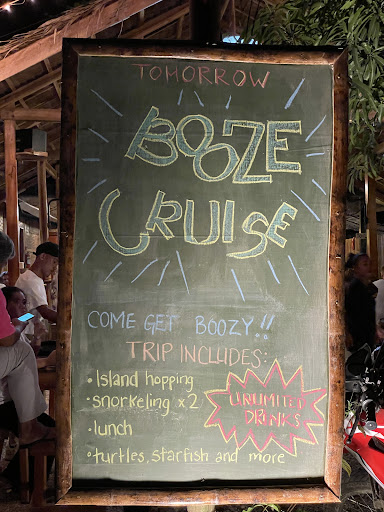 TOMORROW
BOOZE
CRUISE
COME GET BOOZY!!
TRIP INCLUDES:
• Island hopping
• snorkeling x2
• lunch
• turtles, starfish and more
UNLIMITED
DRINKS